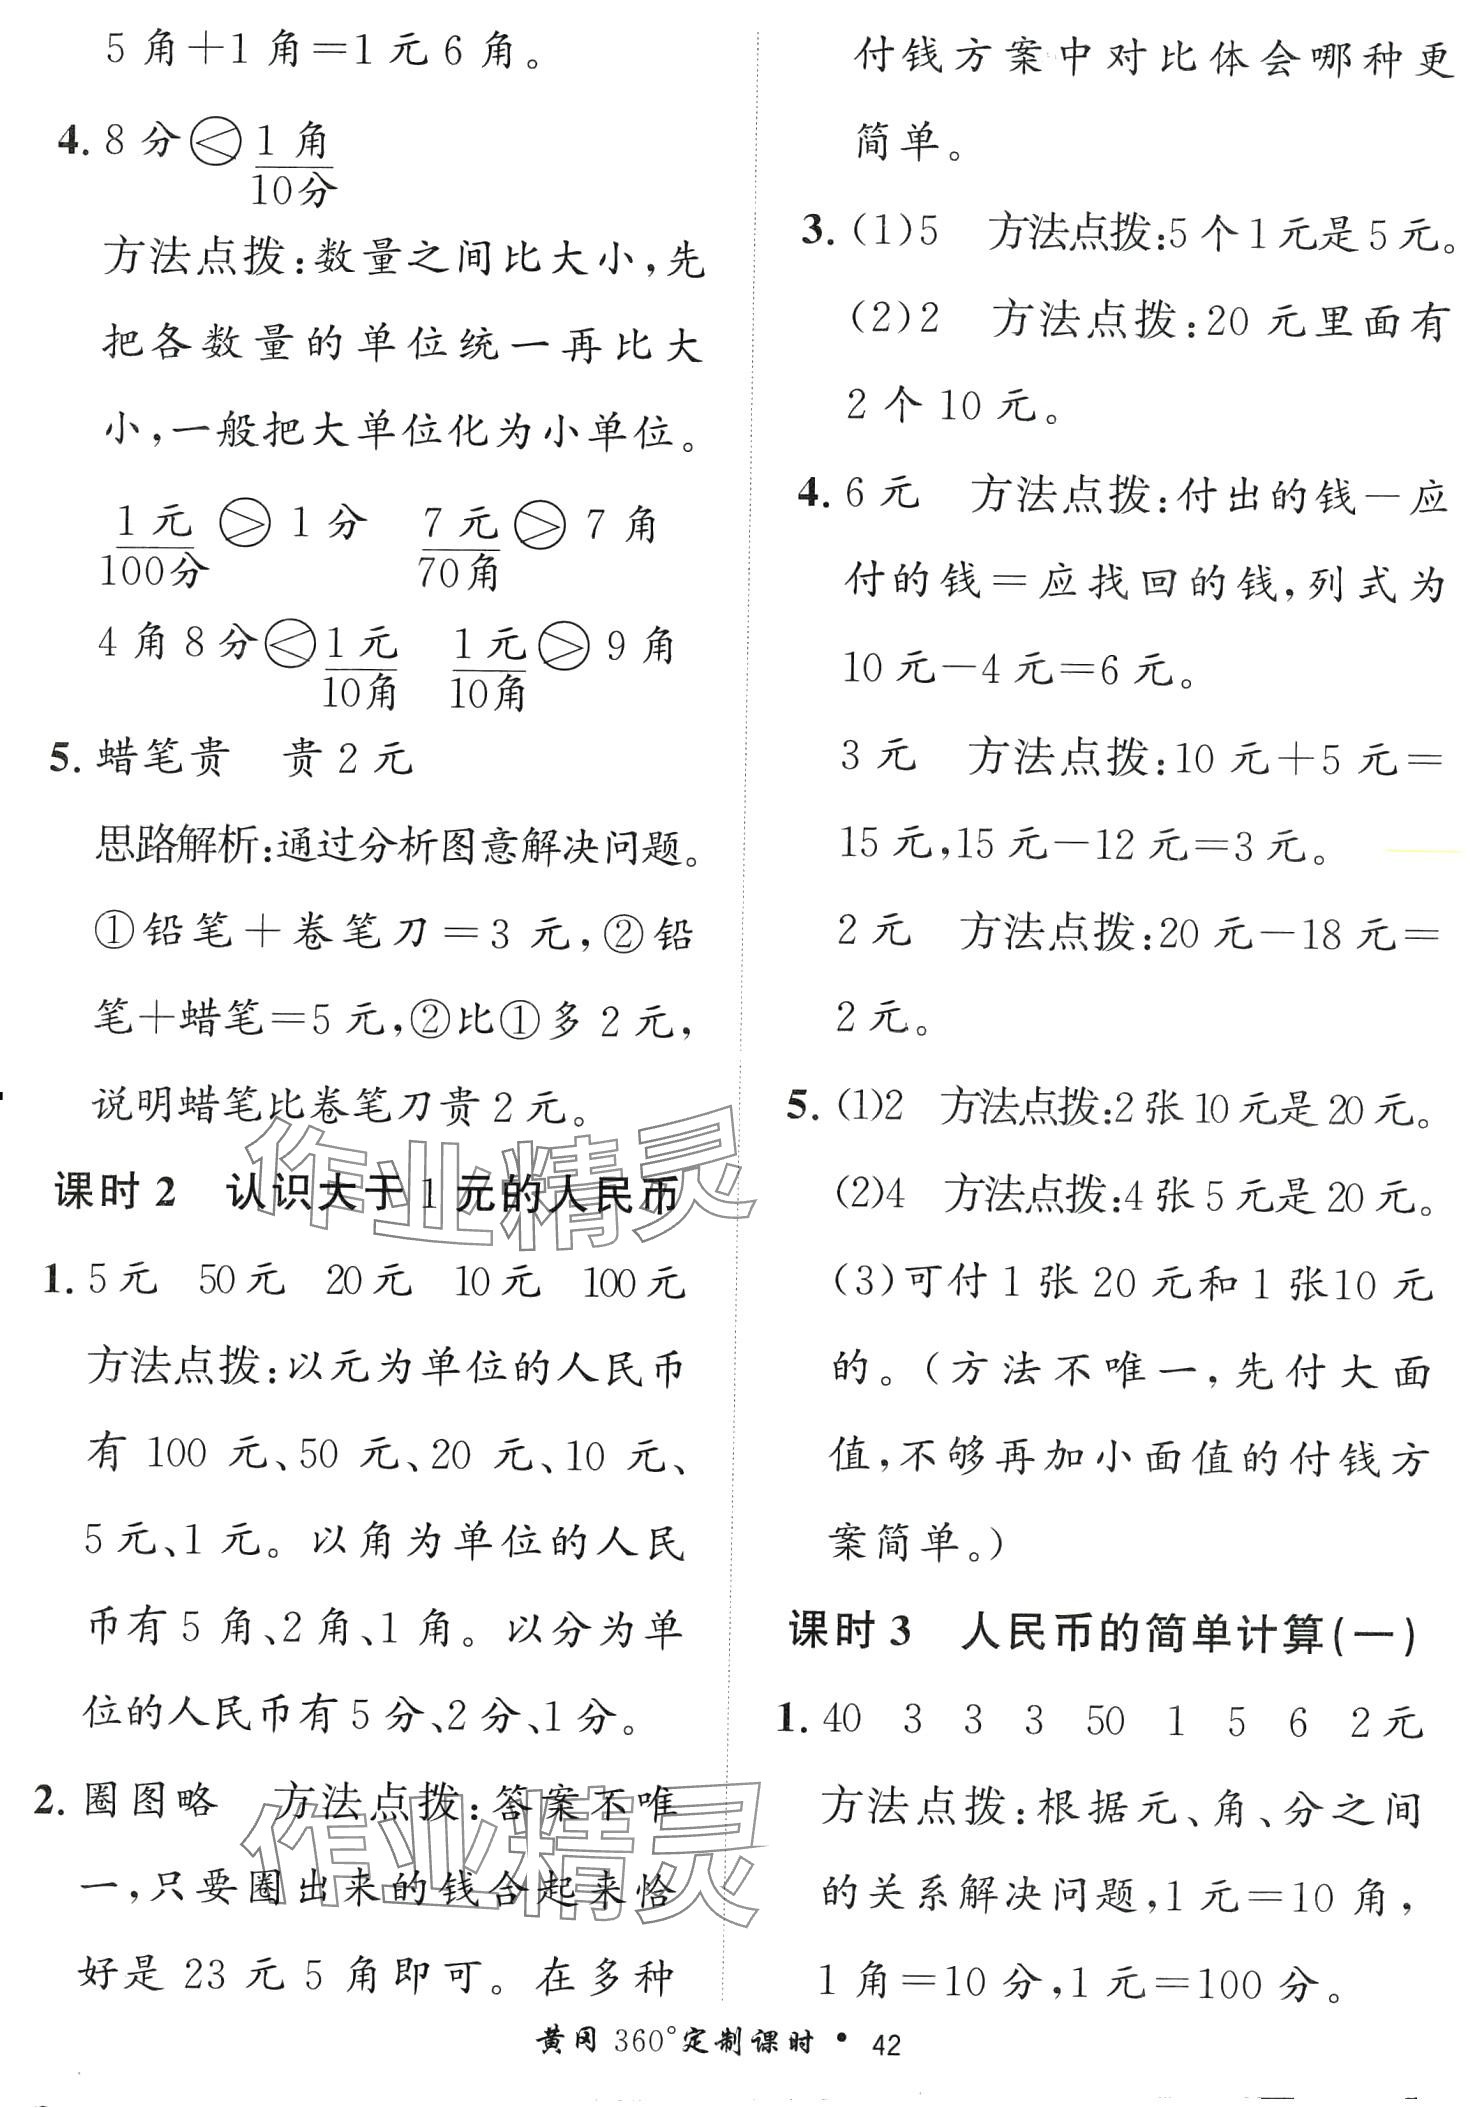 5角＋1角＝1元6角。
4. 8分＜1角
10分
方法点拨：数量之间比大小，先
把各数量的单位统一再比大
小，一般把大单位化为小单位。
1元＞1分 7元＞7角
100分 70角
4角8分＜1元 1元＞9角
10角 10角
5. 蜡笔贵 贵2元
思路解析：通过分析图意解决问题。
①铅笔＋卷笔刀＝3元，②铅
笔＋蜡笔＝5元，②比①多2元，
说明蜡笔比卷笔刀贵2元。
课时2 认识大于1元的人民币
1. 5元 50元 20元 10元 100元
方法点拨：以元为单位的人民币
有100元、50元、20元、10元、
5元、1元。以角为单位的人民
币有5角、2角、1角。以分为单
位的人民币有5分、2分、1分。
2. 圈图略 方法点拨：答案不唯
一，只要圈出来的钱合起来恰
好是23元5角即可。在多种
付钱方案中对比体会哪种更
简单。
3. (1)5 方法点拨：5个1元是5元。
(2)2 方法点拨：20元里面有
2个10元。
4. 6元 方法点拨：付出的钱－应
付的钱＝应找回的钱，列式为
10元－4元＝6元。
3元 方法点拨：10元＋5元＝
15元，15元－12元＝3元。
2元 方法点拨：20元－18元＝
2元。
5. (1)2 方法点拨：2张10元是20元。
(2)4 方法点拨：4张5元是20元。
(3)可付1张20元和1张10元
的。（方法不唯一，先付大面
值，不够再加小面值的付钱方
案简单。）
课时3 人民币的简单计算(一)
1. 40 3 3 3 50 1 5 6 2元
方法点拨：根据元、角、分之间
的关系解决问题，1元＝10角，
1角＝10分，1元＝100分。
黄冈360°定制课时 • 42
作业精灵
作业精灵